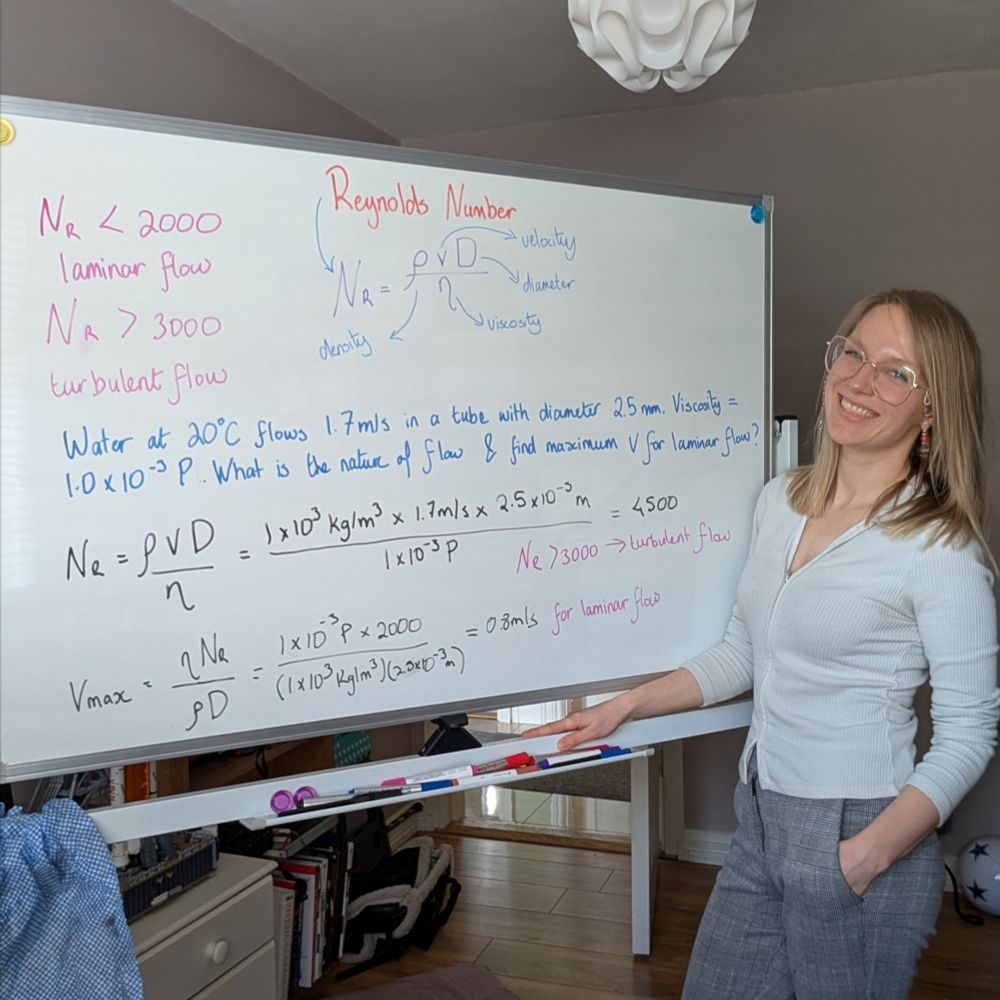 Reynolds Number
N_R < 2000
laminar flow
N_R > 3000
turbulent flow
N_R = ρvD/η
velocity
diameter
viscosity
density
Water at 20°C flows 1.7m/s in a tube with diameter 2.5 mm. Viscosity =
1.0 x 10⁻³ P. What is the nature of flow & find maximum V for laminar flow?
N_R = ρvD/η = 1x10³ kg/m³ x 1.7m/s x 2.5x10⁻³ m / 1x10⁻³ P = 4500
N_R >3000 → turbulent flow
Vmax = ηN_R/ρD = 1x10⁻³ P x 2000 / (1x10³ kg/m³)(2.5x10⁻³ m) = 0.8m/s for laminar flow